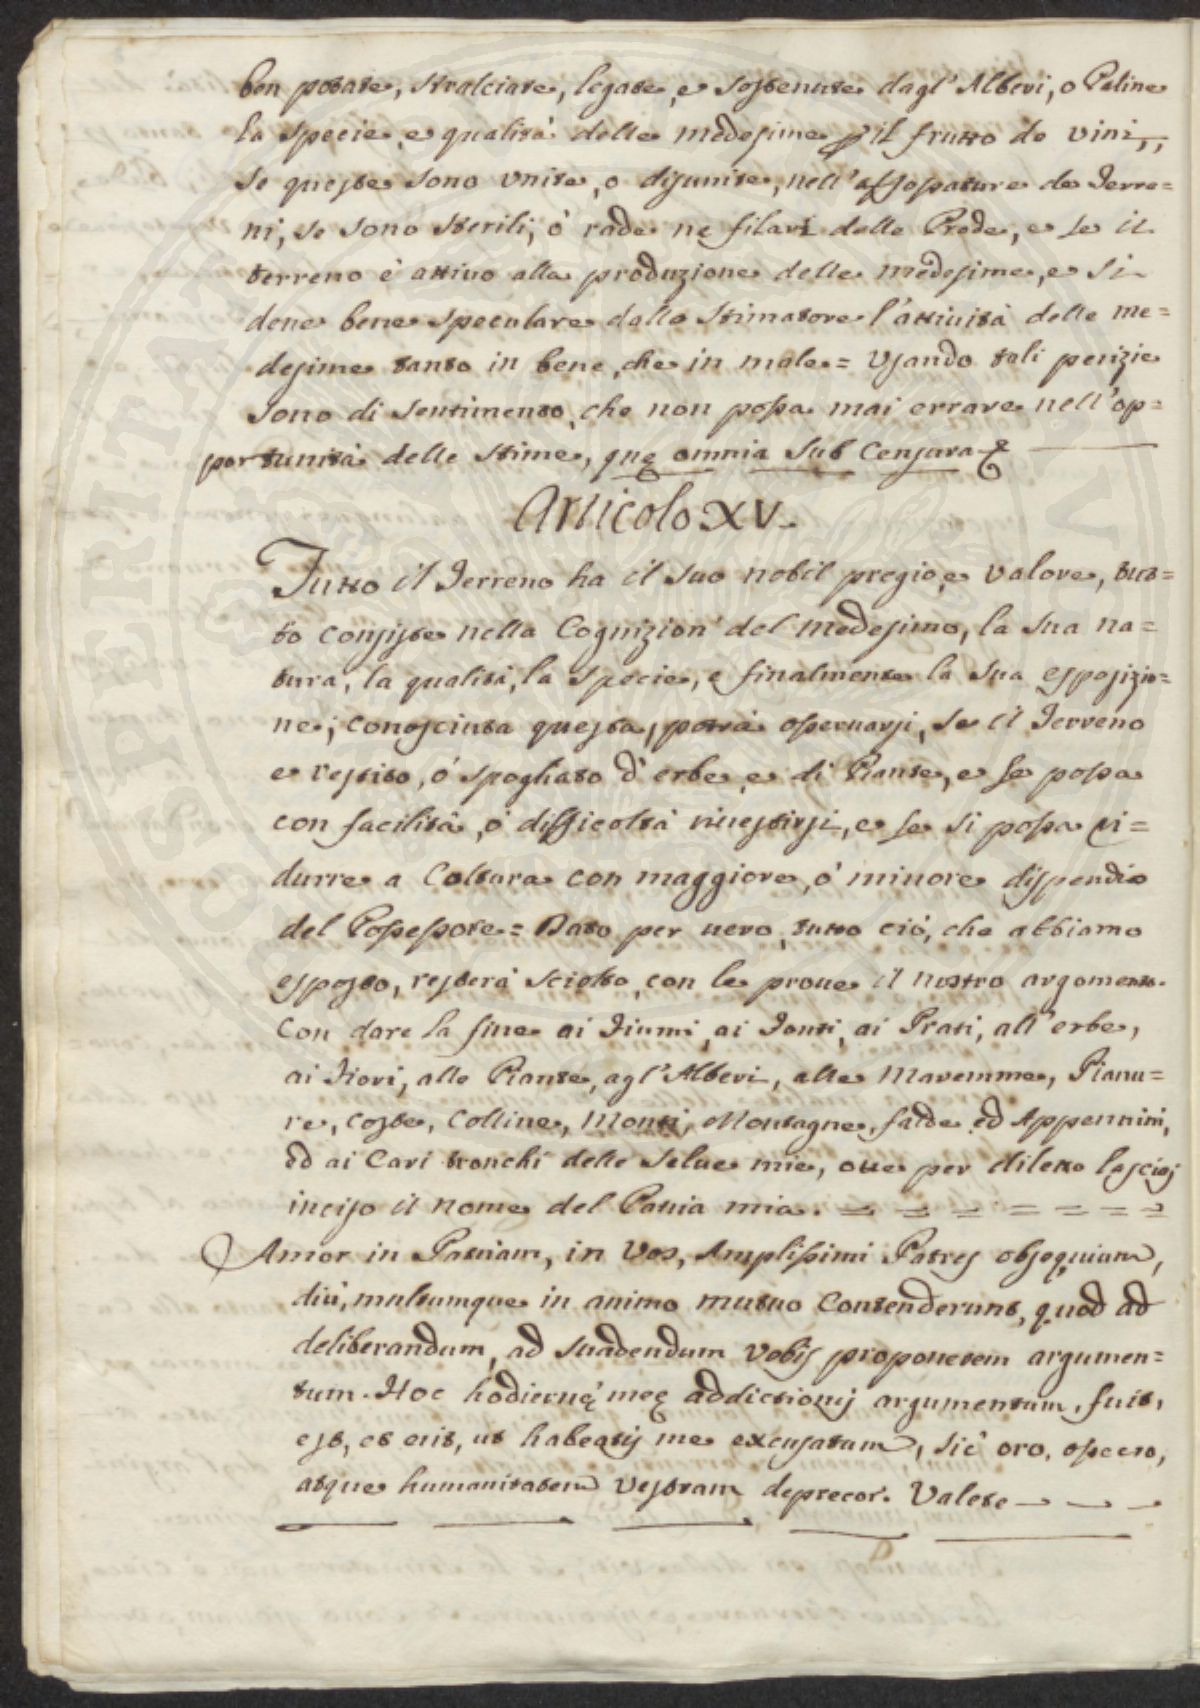 ben potate, stralciate, legate, e sostenute dagl'Alberi, o Paline
la specie, e qualità delle medesime p il frutto de vini,,
se queste sono unite, o disunite, nell'assopature de Terre=
ni, se sono sterili, ò rade ne filari delle Prode, e se il
terreno è attivo alla produzione delle medesime, e si
deve bene speculare dallo Stimatore l'attività delle me=
desime tanto in bene, che in male = Usando tali perizie
sono di sentimento, che non possa mai errare nell'op=
portunità delle stime, quę omnia sub Censura
Articolo XV.
Tutto il Terreno ha il suo nobil pregio, e valore, tut=
to consiste nella Cognizion' del medesimo, la sua na=
tura, la qualità, la specie, e finalmente la sua esposizio=
ne; conosciuta questa, potrà osservarsi, se il Terreno
e vestito, ò spogliato d'erbe, e di Piante, e se possa
con facilità, ò difficoltà rivestirsi, e se si possa ri=
durre a Coltura con maggiore, ò minore dispendio
del Possessore = Dato per vero, tutto ciò, che abbiamo
esposto, resterà sciolto, con le prove il nostro argomento.
Con dare la fine ai Fiumi, ai Fonti, ai Prati, all'erbe,
ai Fiori, alle Piante, agl'Alberi, alle Maremme, Pianu=
re, Coste, Colline, Monti, Montagne, falde ed Appennini,
ed ai Cari tronchi delle Selve mie, ove per diletto lasciai
inciso il nome del Patria mia. = = = = = = =
Amor in Patriam, in Vos, Amplissimi Patres obsequium,
diù, multumque in animo mutuo Contenderunt, quod ad
deliberandum, ad suadendum Vobis proponerem argumen=
tum. Hoc hodiernę meę addictionis argumentum, fuit,
est, et erit, ut habeatis me excusatum, sic oro,
atque humanitatem Vestram deprecor. Valete